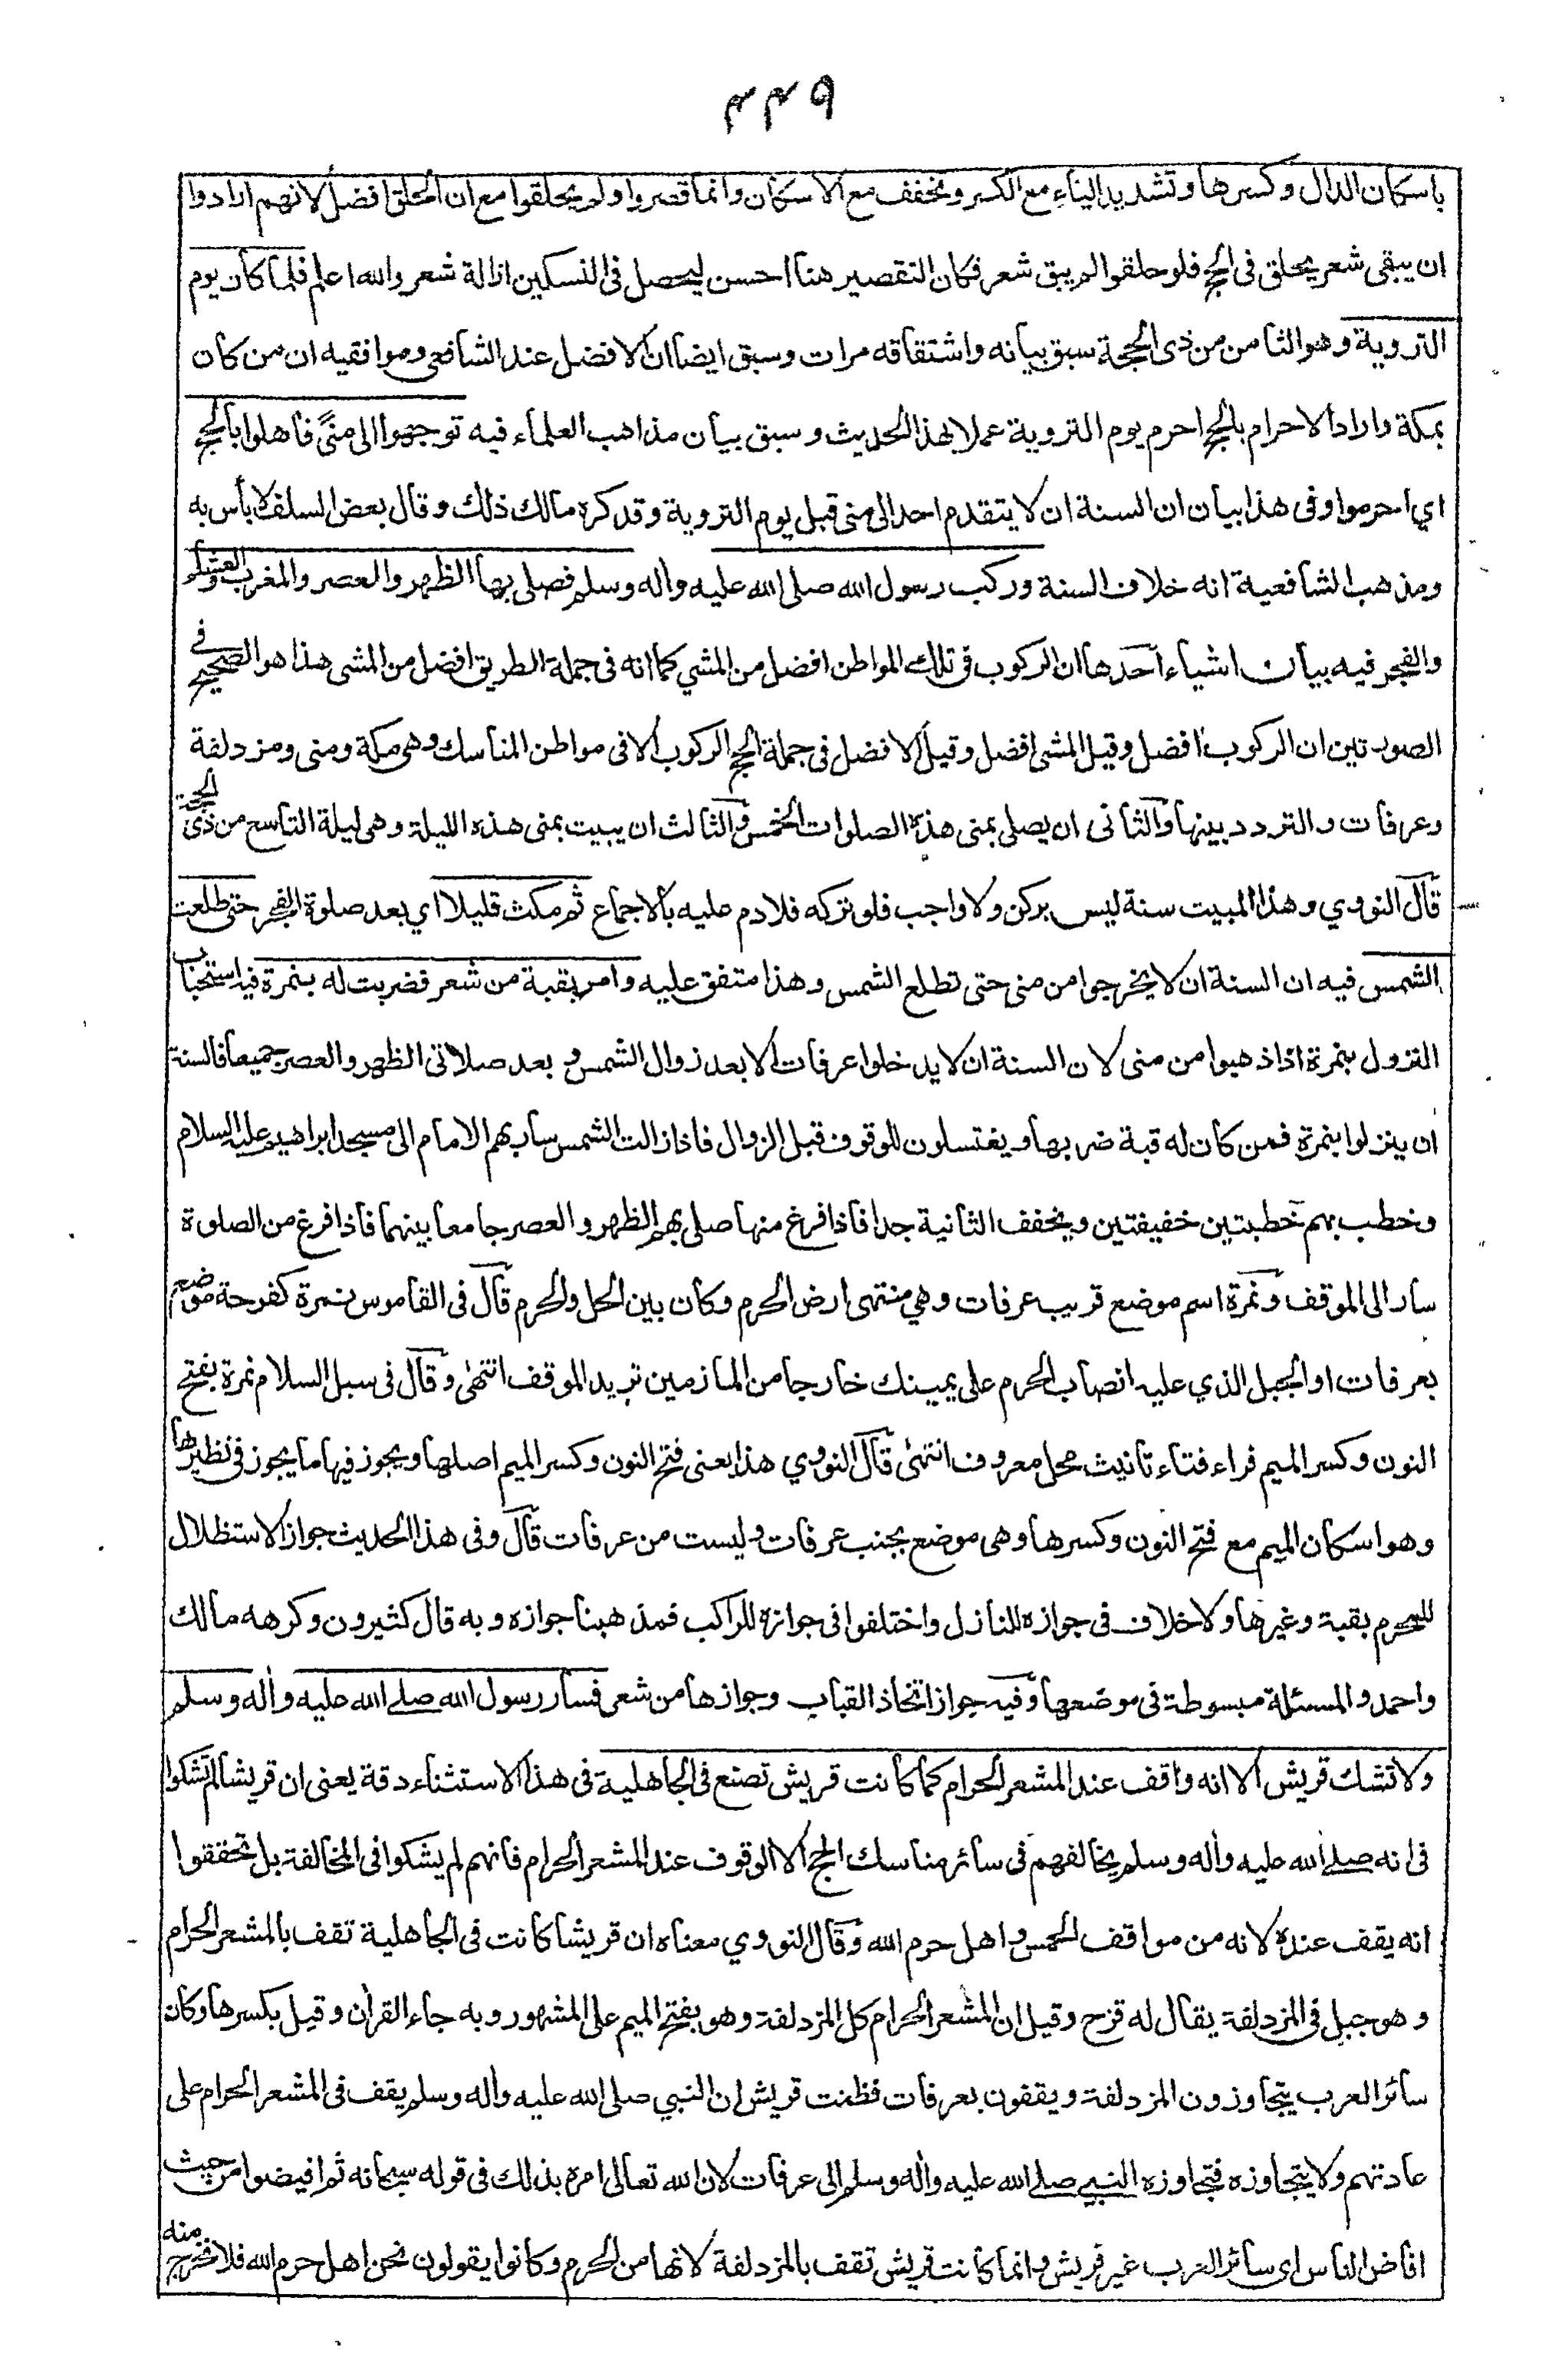 ٣٣٩
باسكان الدال وكسرها وتشديد الياء مع الكسر وتخفف مع الاسكان وانما قصروا ولم يحلقوا مع ان الحلق افضل لانهم ارادوا
ان يبقى شعر يحلق فى الحج فلو حلقوا لم يبق شعر فكان التقصير هنا احسن ليحصل فى النسكين ازالة شعر والله اعلم فلما كان يوم
التروية وهو الثامن من ذى الحجة سبق بيانه واشتقاقه مرات وسبق ايضا ان الافضل عند الشافعى وموافقيه ان من كان
بمكة واراد الاحرام بالحج احرم يوم التروية عملا بهذا الحديث وسبق بيان مذاهب العلماء فيه توجهوا الى منًى فاهلوا بالحج
اي احرموا وفى هذا بيان ان السنة ان لا يتقدم احد الى منى قبل يوم التروية وقد كره مالك ذلك وقال بعض السلف لا بأس به
ومذهب الشافعية انه خلاف السنة وركب رسول الله صلى الله عليه واله وسلم فصلى بها الظهر والعصر والمغرب والعشاء
والفجر فيه بيان اشياء احدها ان الركوب فى تلك المواطن افضل من المشي كما انه فى جملة الطريق افضل من المشى هذا هو الصحيح فى
الصورتين ان الركوب افضل وقيل المشى افضل وقيل الافضل فى جملة الحج الركوب الا فى مواطن المناسك وهى مكة ومنى ومزدلفة
وعرفات والتردد بينها والثانى ان يصلى بمنى هذه الصلوات الخمس والثالث ان يبيت بمنى هذه الليلة وهى ليلة التاسع من ذى الحجة
قال النووي وهذا المبيت سنة ليس بركن ولا واجب فلو تركه فلا دم عليه بالاجماع ثم مكث قليلا اي بعد صلوة الفجر حتى طلعت
الشمس فيه ان السنة ان لا يخرجوا من منى حتى تطلع الشمس وهذا متفق عليه وامر بقبة من شعر فضربت له بنمرة فيه استحباب
النزول بنمرة اذا ذهبوا من منى لان السنة ان لا يدخلوا عرفات الا بعد زوال الشمس و بعد صلاتى الظهر والعصر جميعا فالسنة
ان ينزلوا بنمرة فمن كان له قبة ضربها ويغتسلون للوقوف قبل الزوال فاذا زالت الشمس سار بهم الامام الى مسجد ابراهيم عليه السلام
وخطب بهم خطبتين خفيفتين ويخفف الثانية جدا فاذا فرغ منها صلى بهم الظهر والعصر جامعا بينهما فاذا فرغ من الصلوة
سار الى الموقف ونمرة اسم موضع قريب عرفات وهي منتهى ارض الحرم وكان بين الحل والحرم قال فى القاموس نمرة كفرحة موضع
بعرفات او الجبل الذي عليه انصاب الحرم على يمينك خارجا من المازمين تريد الموقف انتهى وقال فى سبل السلام نمرة بفتح
النون وكسر الميم فراء فتاء تانيث محل معروف انتهى قال النووي هذا يعنى فتح النون وكسر الميم اصلها ويجوز فيها ما يجوز فى نظيرها
وهو اسكان الميم مع فتح النون وكسرها وهى موضع بجنب عرفات وليست من عرفات قال وفى هذا الحديث جواز الاستظلال
للمحرم بقبة وغيرها ولا خلاف فى جوازه للنازل واختلفوا فى جوازه للراكب فمذهبنا جوازه وبه قال كثيرون وكرهه مالك
واحمد والمسئلة مبسوطة فى موضعها وفيه جواز اتخاذ القباب وجوازها من شعر فسار رسول الله صلى الله عليه واله وسلم
ولا تشك قريش الا انه واقف عند المشعر الحرام كما كانت قريش تصنع فى الجاهلية فى هذا الاستثناء دقة يعنى ان قريشا لم تشكوا
فى انه صلى الله عليه واله وسلم يخالفهم فى سائر مناسك الحج الا الوقوف عند المشعر الحرام فانهم لم يشكوا فى المخالفة بل تحققوا
انه يقف عنده لانه من مواقف الحمس واهل حرم الله وقال النووي معناه ان قريشا كانت فى الجاهلية تقف بالمشعر الحرام
وهو جبل فى المزدلفة يقال له قزح وقيل ان المشعر الحرام كل المزدلفة وهو بفتح الميم على المشهور وبه جاء القران وقيل بكسرها وكان
سائر العرب يتجاوزون المزدلفة ويقفون بعرفات فظنت قريش ان النبي صلى الله عليه واله وسلم يقف فى المشعر الحرام على
عادتهم ولا يتجاوزه فتجاوزه النبي صلى الله عليه واله وسلم الى عرفات لان الله تعالى امره بذلك فى قوله سبحانه ثم افيضوا من حيث
افاض الناس اى سائر العرب غير قريش وانما كانت قريش تقف بالمزدلفة لانها من الحرم وكانوا يقولون نحن اهل حرم الله فلا نخرج منه